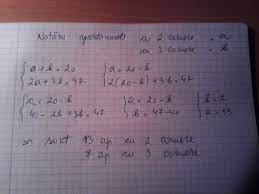 Notăm: apartamente cu 2 camere = a
cu 3 camere = b
{ a + b = 20 { a = 20 - b
2a + 3b = 47 2(20 - b) + 3b = 47
{ a = 20 - b { a = 20 - b { b = 7
40 - 2b + 3b = 47 b = 47 - 40 a = 13
=> sunt 13 ap cu 2 camere
7 ap cu 3 camere